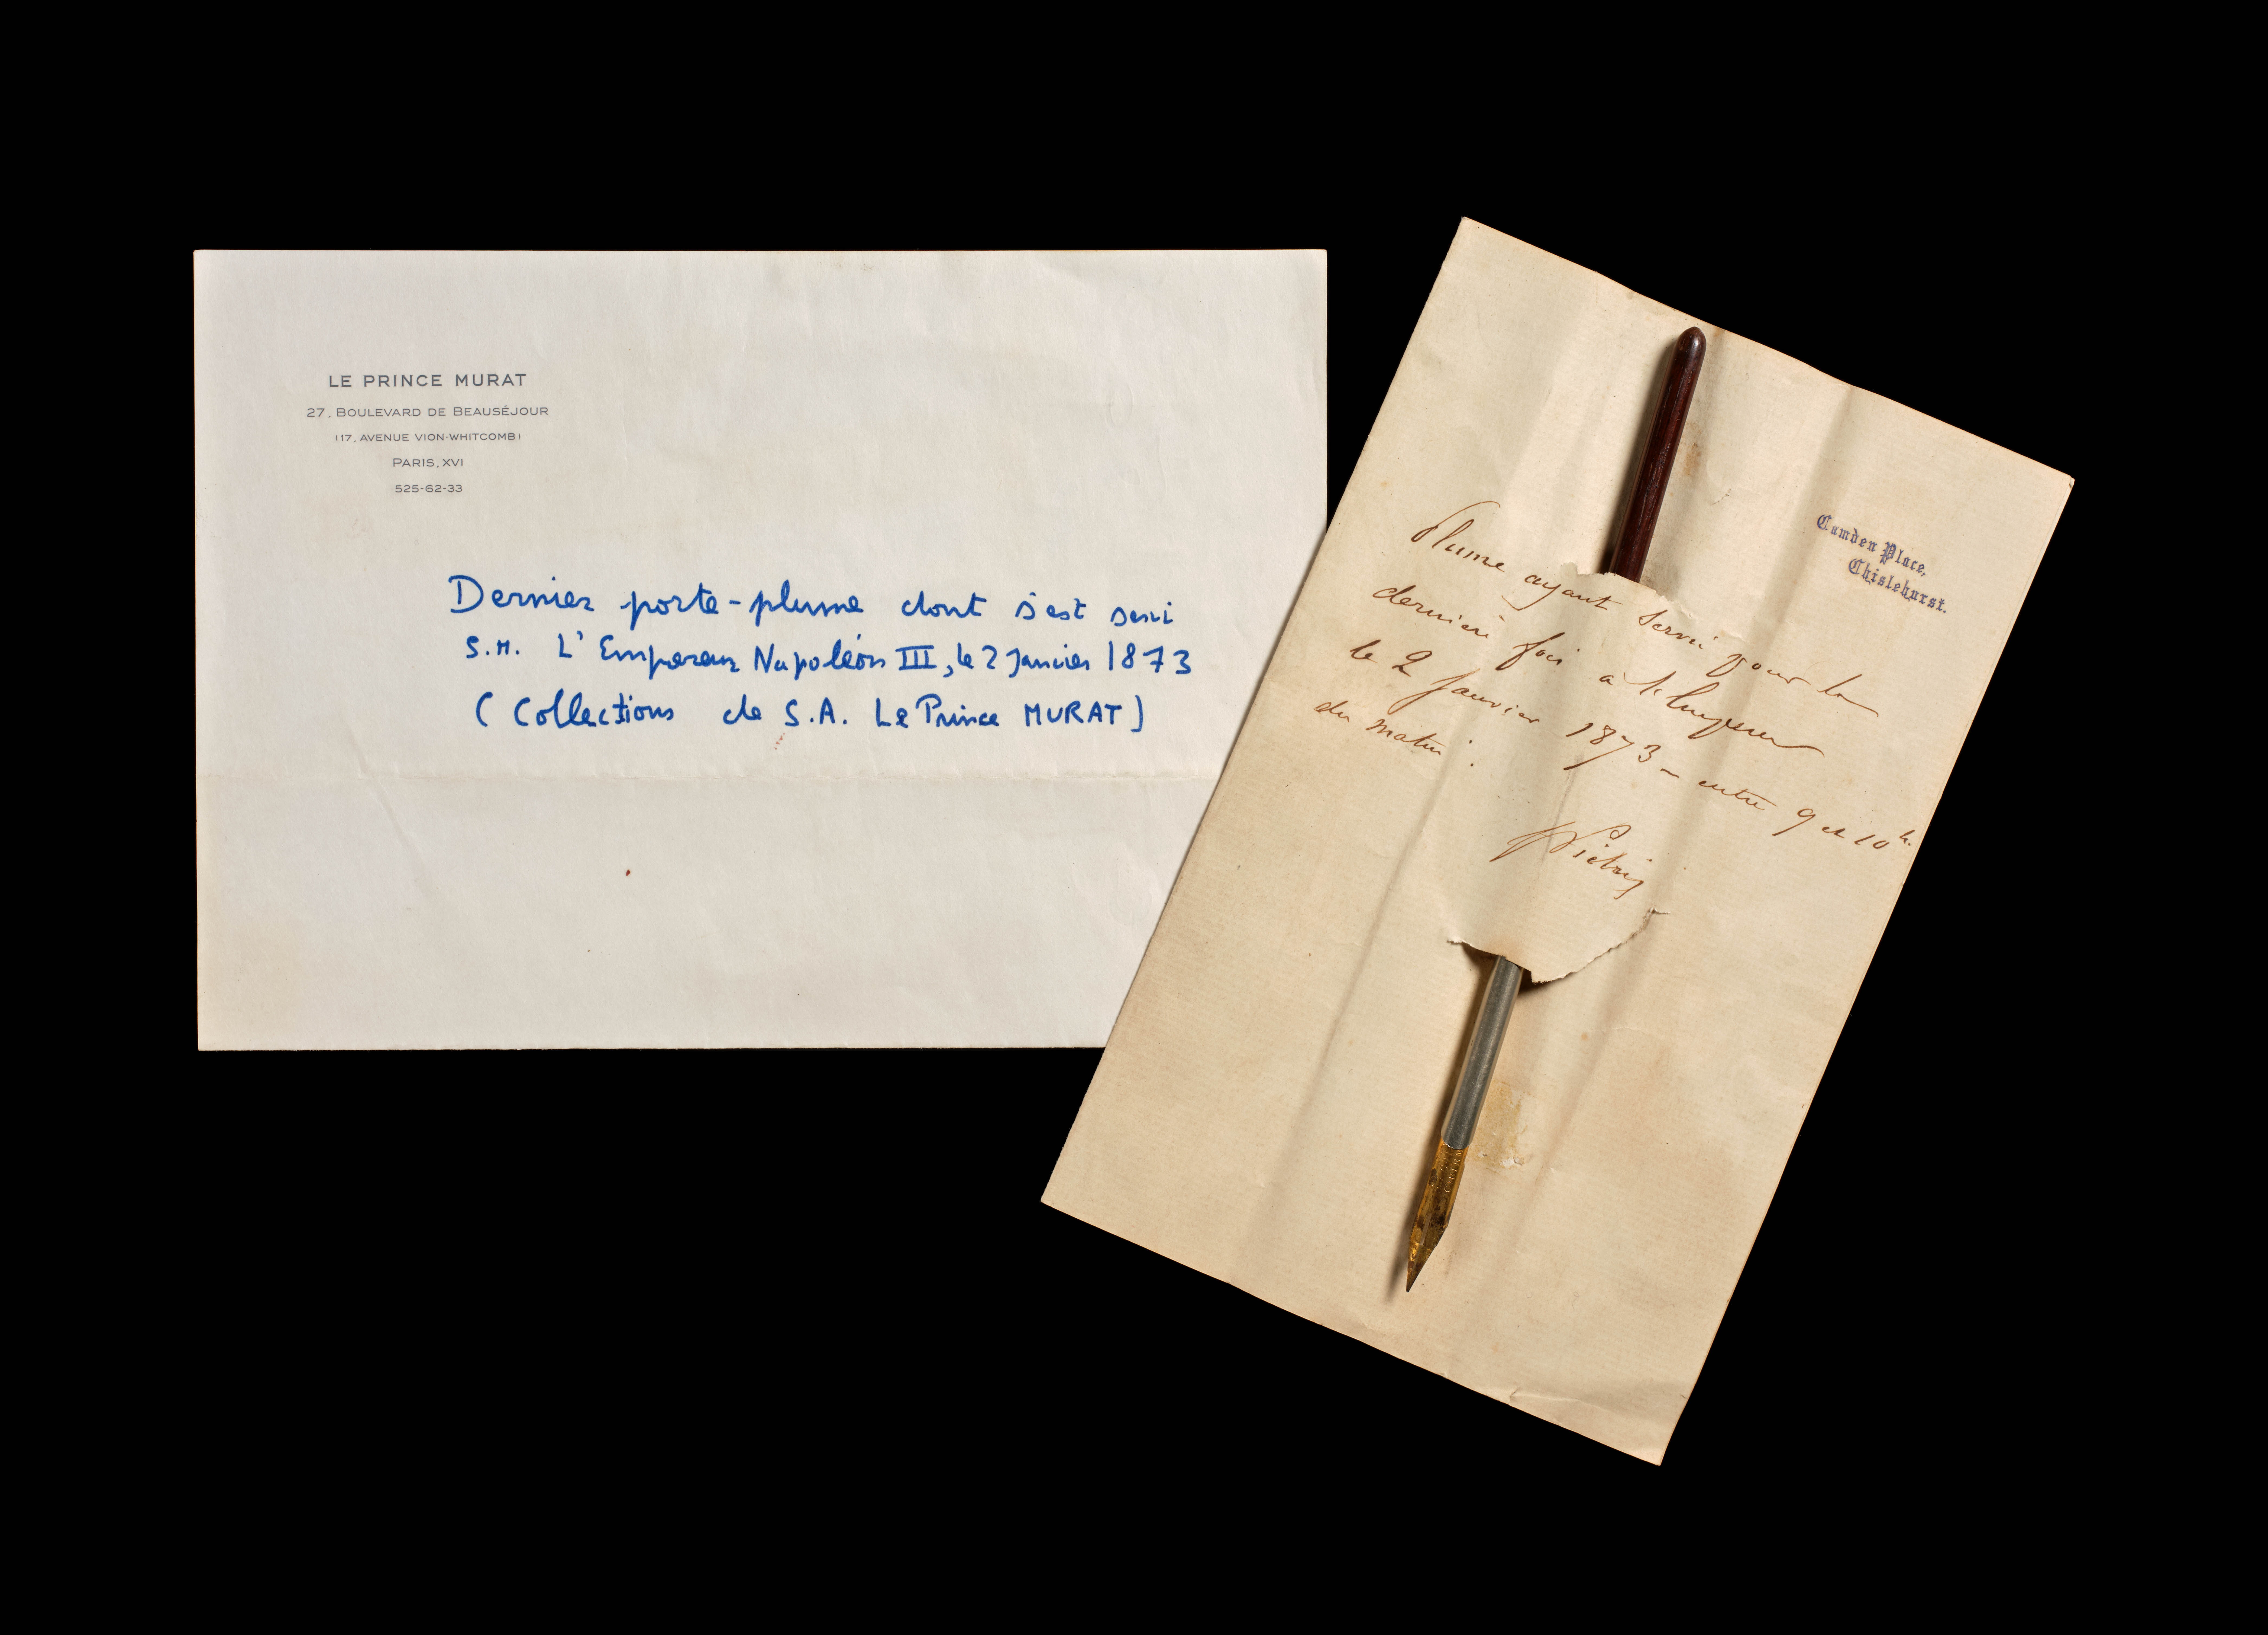 LE PRINCE MURAT
27, BOULEVARD DE BEAUSÉJOUR
(17, AVENUE VION-WHITCOMB)
PARIS, XVI
525-62-33
Dernier porte-plume dont s'est servi
S.M. L'Empereur Napoléon III, le 2 Janvier 1873
(Collections de S.A. Le Prince MURAT)
Camden Place,
Chislehurst.
Plume ayant servi pour la
dernière fois a l'Empereur
le 2 Janvier 1873 - entre 9 et 10 h.
du matin.
Pietri